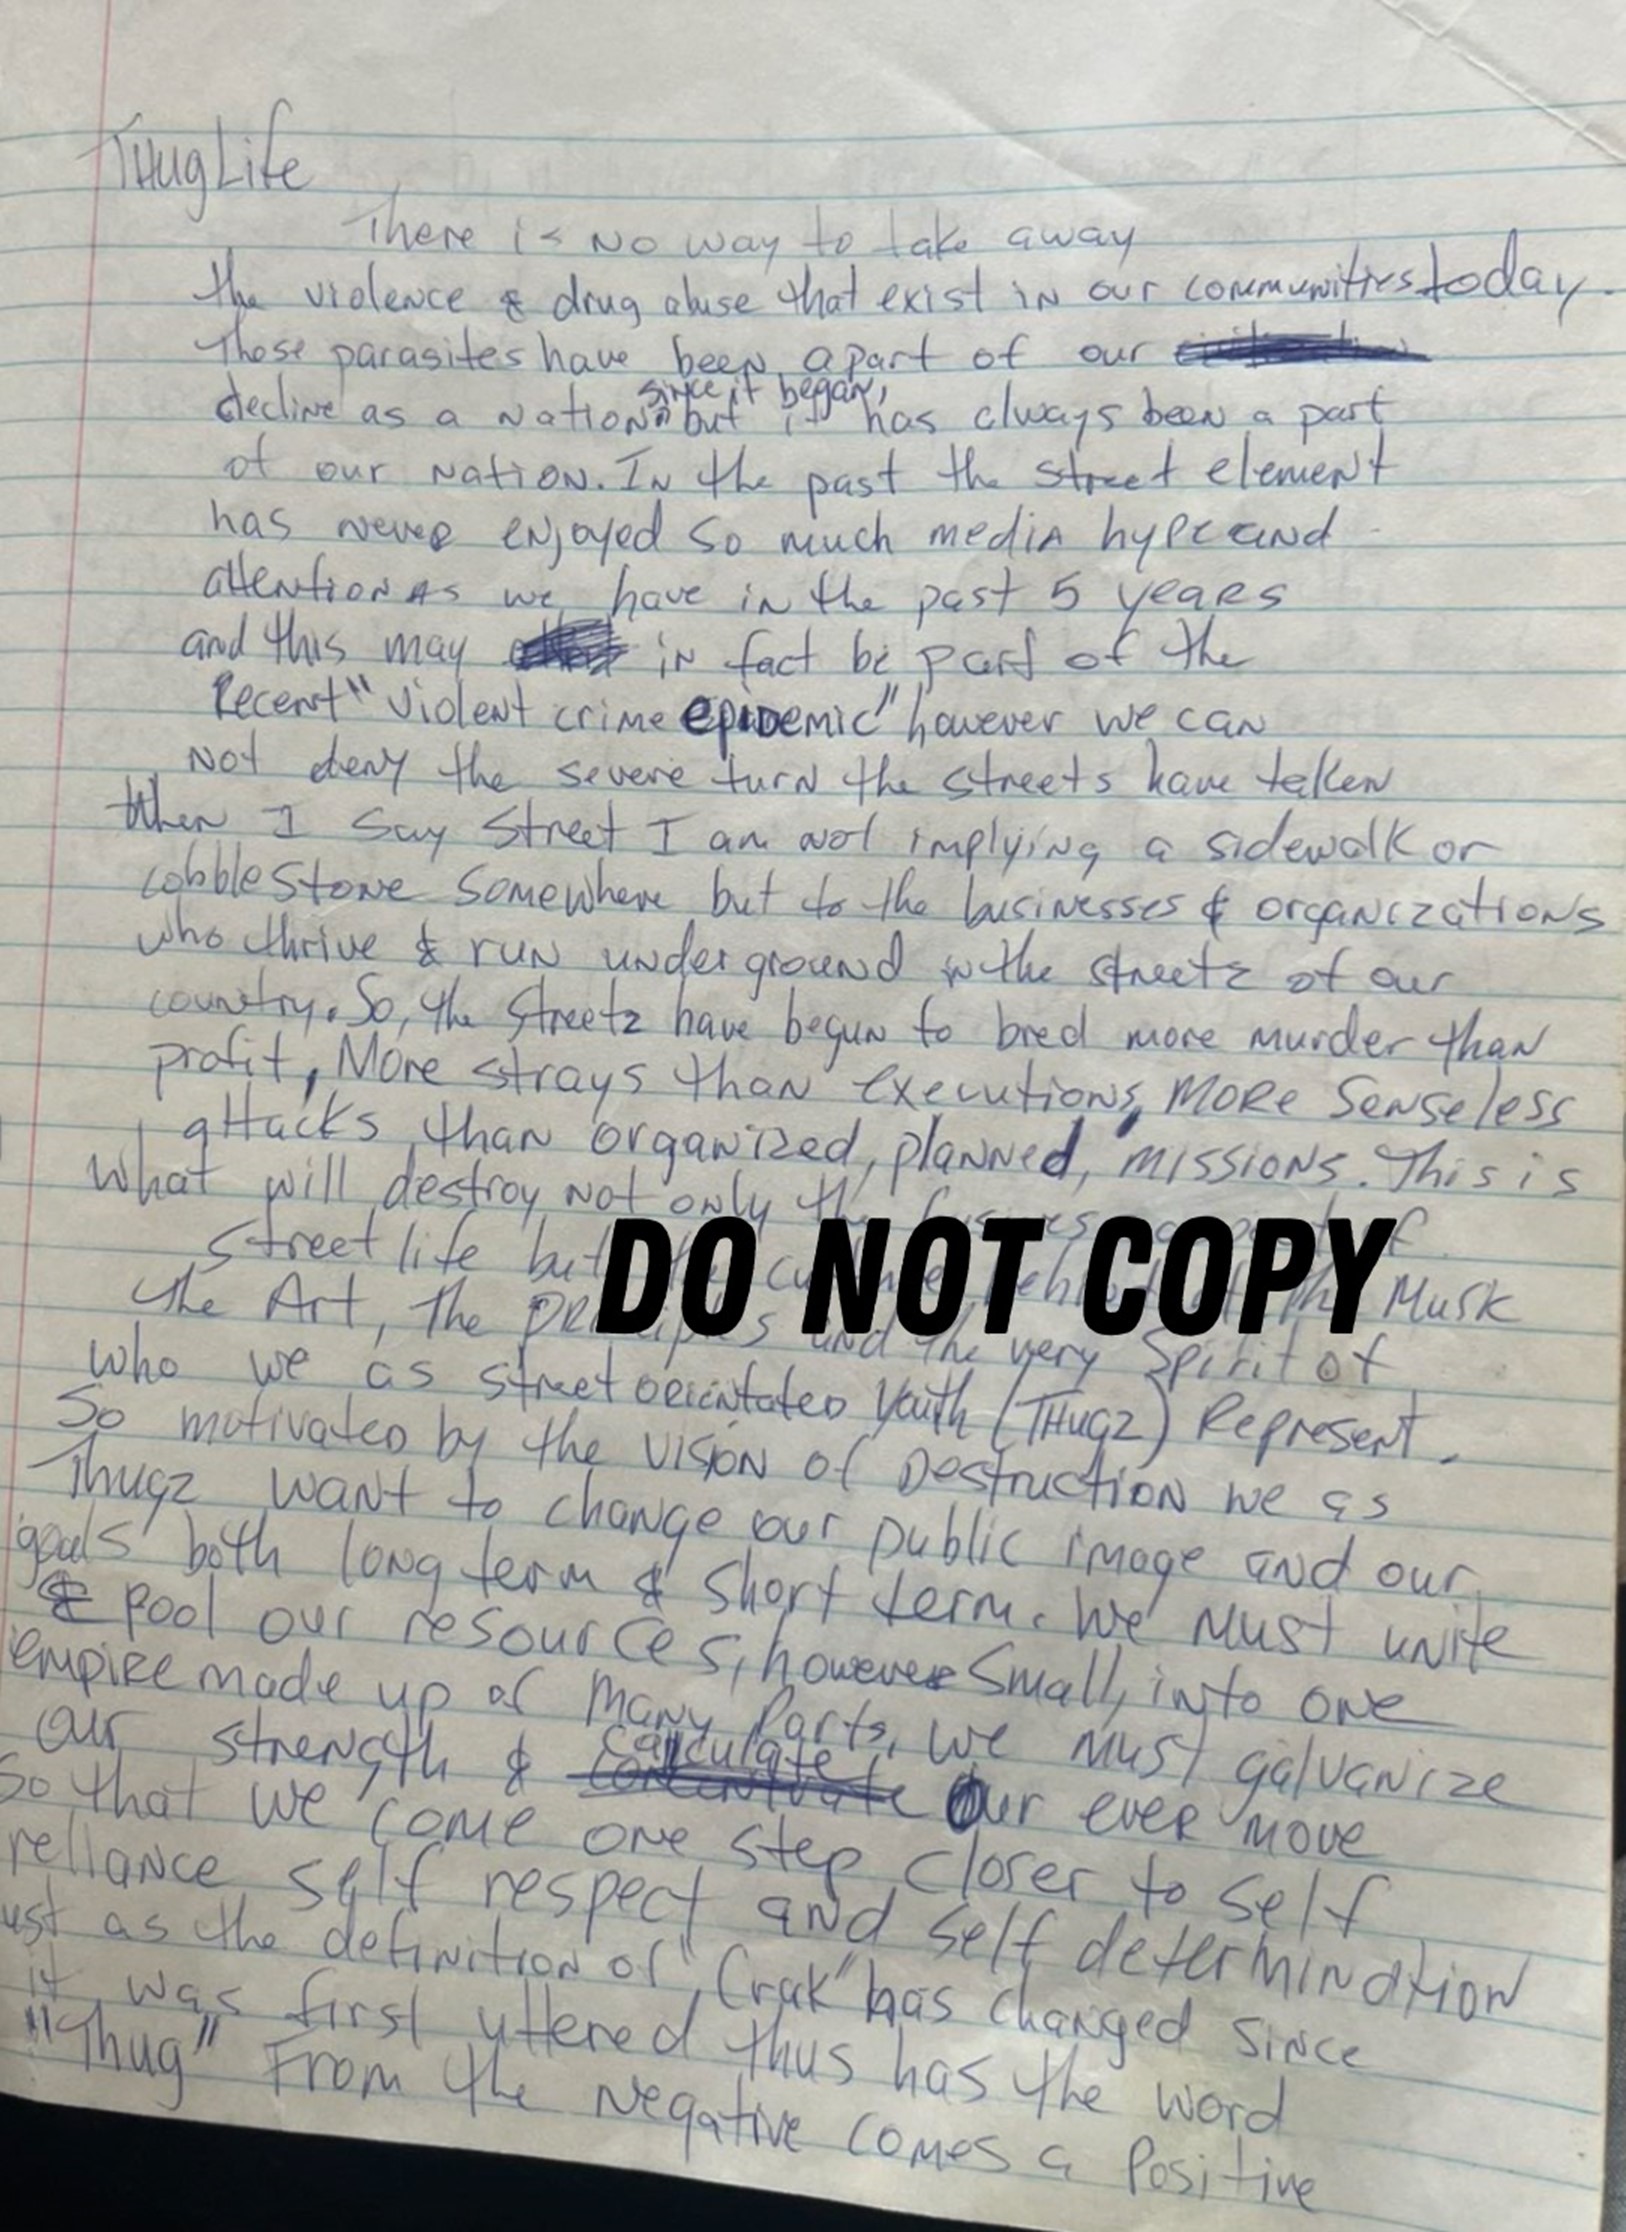 THug Life
There is No way to take away
the violence & drug abuse that exist in our communities today.
These parasites have been apart of our
since it began,
decline as a nation but it has always been a part
of our nation. In the past the street element
has never enjoyed so much media hype and
attention As we have in the past 5 years
and this may in fact be part of the
Recent "violent crime epidemic" however we can
not deny the severe turn the streets have taken
When I say Street I am not implying a sidewalk or
cobblestone somewhere but to the businesses & organizations
who thrive & run underground in the streetz of our
country. So, the Streetz have begun to bred more murder than
profit, More strays than executions, More Senseless
attacks than organized, planned, missions. This is
what will destroy not only the
Street life but the Musik
DO NOT COPY
The Art, The Principles and the very Spirit of
who we as street orientated Youth (THugz) Represent.
So motivated by the vision of Destruction we as
Thugz want to change our public image and our
goals both long term & short term. We must unite
& pool our resources, however small, into one
empire made up of Many Parts. We must galvanize
our strength & Calculate Our ever move
So that we come one step closer to self
reliance self respect and self determination
ust as the definition of "Crak" has changed since
it was first uttered thus has the word
"Thug" From the Negative comes a Positive